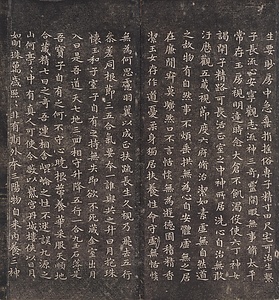 生要眇房中急棄捐淫俗專子精寸田尺宅可治生繫
子長流心安寧觀志流神三奇靈閑暇無事脩太平
常存玉房視明達時念大倉不飢渴役使六丁神女
謁閉子精路可長活正室之中神所居洗心自治無敢
汙歷觀五藏視節度六府脩治潔如素虛無自然道
之故物有自然事不煩垂拱無為心自安體虛無之居
在廉間寂莫曠然口不言恬惔無為遊德園積精香
潔玉女存作道憂柔身獨居扶養性命守虛無恬惔
無為何思慮羽翼以成正扶疏長生久視乃飛去五行
參差同根節三五合氣要本一誰與共之升日月抱珠
懷玉和子室子自有之持無失即欲不死藏金室出月
入日是吾道天七地三回相守升降五行一合九玉石落落是
吾寶子自有之何不守心曉根蒂養華采服天順地
合藏精七日之奇吾連相合崐崘之性不迷誤九源之
山何亭亭中有真人可使令蔽以紫宮丹城樓俠以日月
如明珠萬歲照照非有期外本三陽物自來內養三神